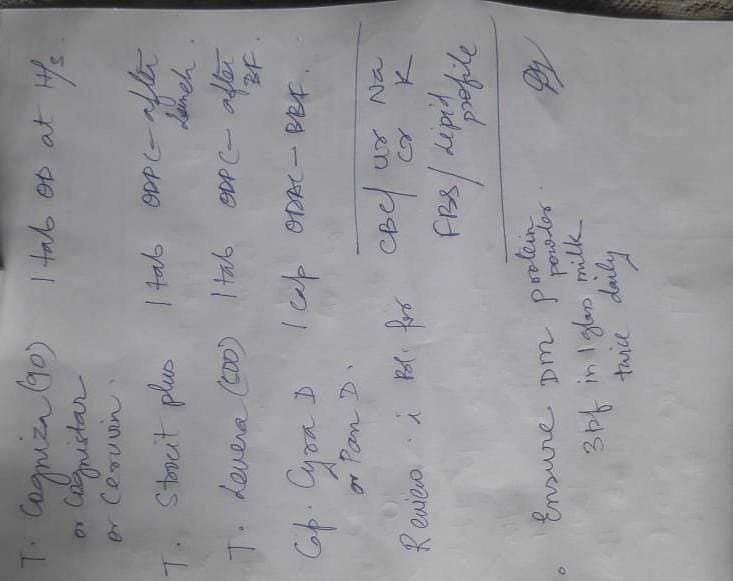 T. Cogniza (90) 1 tab OD at H/S.
or Cognistar
or Cerivin.
T. Strocit plus 1 tab ODPC - after
lunch.
T. Levera (500) 1 tab ODPC - after
BF.
Cap. Cyra D 1 cap ODAC - BBF.
or Pan D.
Review i Bl. for CBC/ Ur Na
Cr K
FBS/ Lipid
profile
Ensure DM protein
powder.
3 in 1 glass milk
twice daily